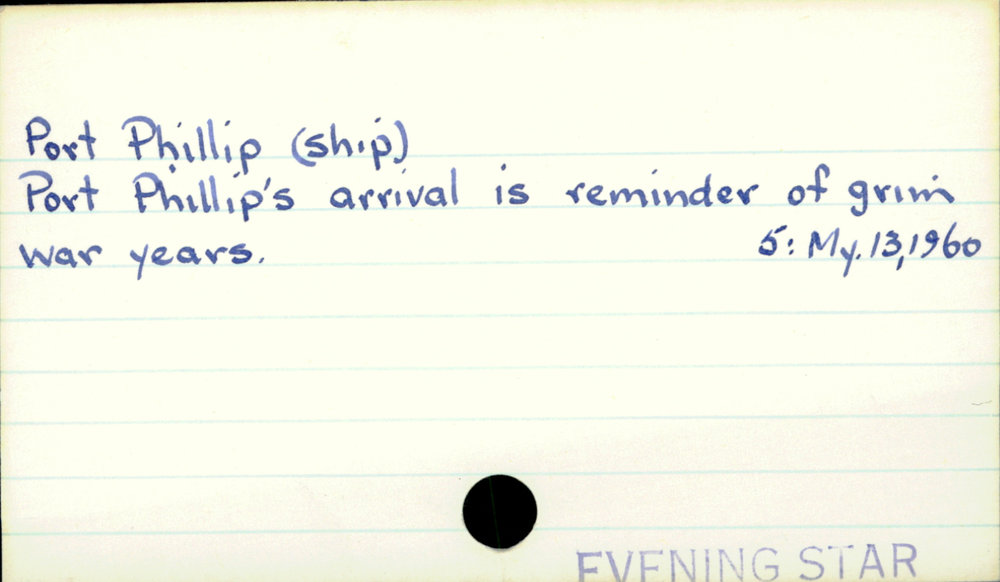 Port Phillip (ship)
Port Phillip's arrival is reminder of grim
war years. 5: My. 13, 1960
EVENING STAR